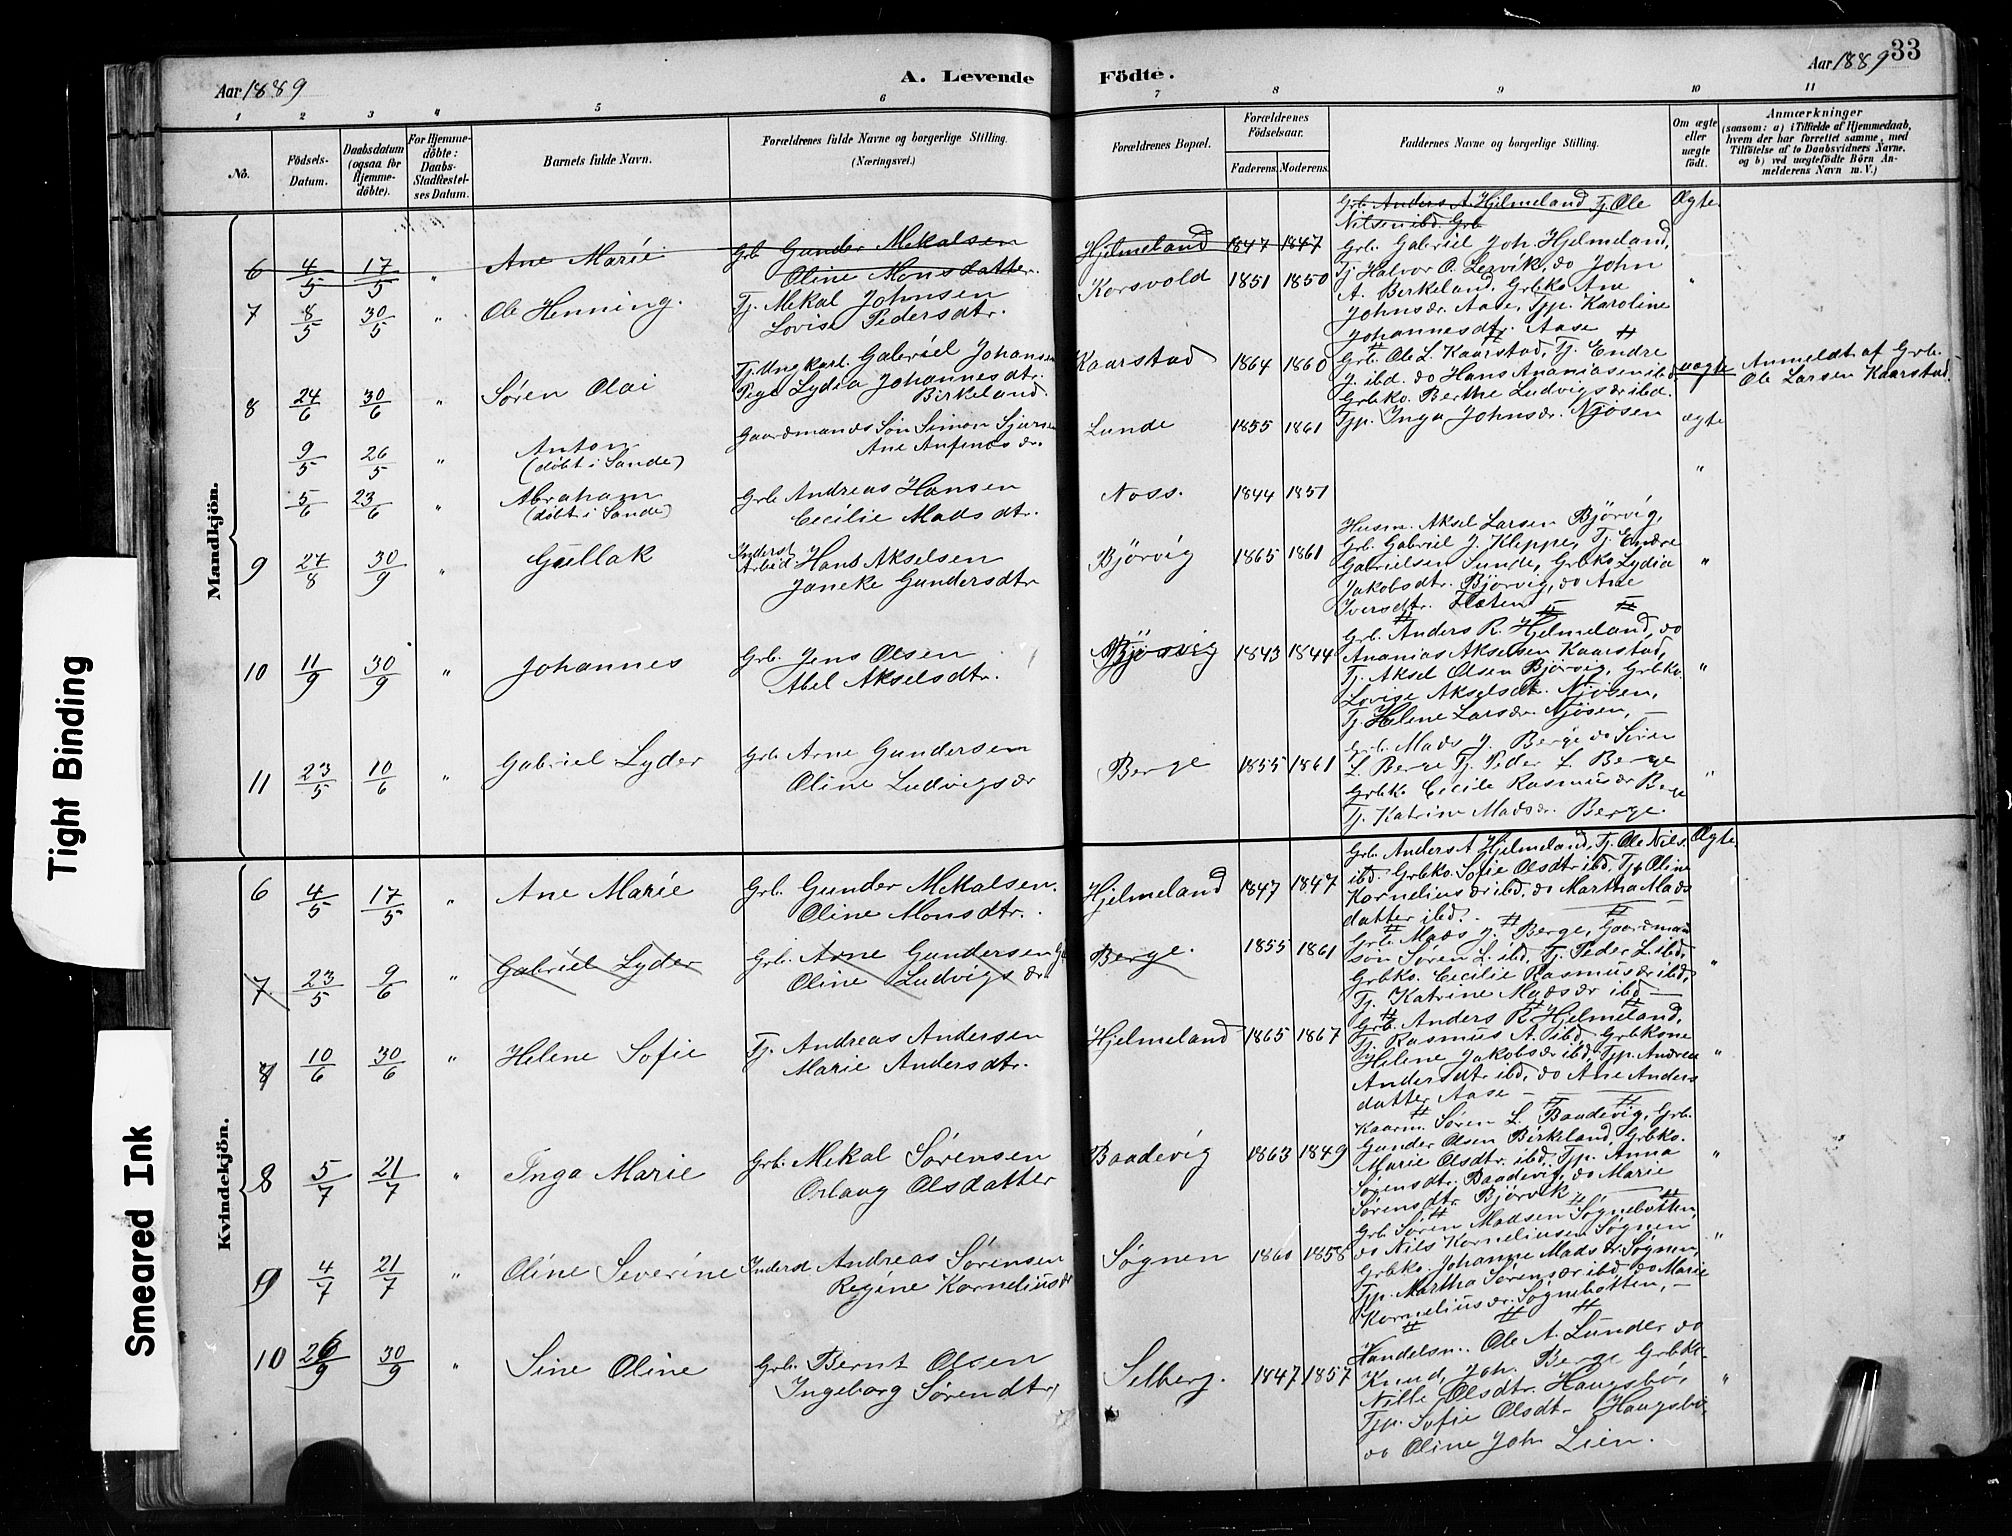 33
Aar 1889
A. Levende
Födte.
Aar 1889
1 2 3 4 5 6 7 8 9 10 11
No.
Födsels-
Datum.
Daabsdatum
(ogsaa for
Hjemme-
döbte).
For Hjemme-
döbte:
Daabs-
Stadfæstel-
ses Datum.
Barnets fulde Navn.
Forældrenes fulde Navne og borgerlige Stilling.
(Næringsvei.)
Forældrenes Bopæl.
Forældrenes
Födselsaar.
Faderens. Moderens.
Faddernes Navne og borgerlige Stilling.
Om ægte
eller
uægte
födt.
Anmærkninger
(saasom: a) i Tilfælde af Hjemmedaab,
hvem der har forrettet samme, med
Tilföielse af to Daabsvidners Navne,
og b) ved uægtefödte Börn An-
melderens Navn m. V.)
Mandkjön.
6 4/5 17/5 " Ane Marie
Grb. Gunder Mikalsen
Oline Monsdatter.
Hjelmeland 1847 1847
Grb. Anders A. Hjelmeland Tj. Ole
Nilsen ibd. Grb
Ægte
7 8/5 30/5 " Ole Henning.
Tj. Mikal Johnsen
Lovise Pedersdtr.
Korsvold 1851 1850
Grb. Gabriel Joh. Hjelmeland,
Tj. Halvor O. Lervik, do John
A. Birkeland, Grbko Ane
Johnsdr. Aase, Tjp. Karoline
Johannesdtr. Aase
"
8 24/6 30/6 " Søren Olai
Tj. Ungkarl Gabriel Johansen
Pige Lydia Johannesdtr.
Birkeland.
Kaarstad 1864 1860
Grb. Ole L. Kaarstad, Tj. Endre
J. ibd. do Hans Ananiasen ibd.
Grbko. Berthe Ludvigsdr ibd.
Tjp. Inga Johnsdr. Njøsen
uægte
Anmeldt af Grb.
Ole Larsen Kaarstad.
9/5 26/5 " Anton
(døbt i Sande)
Gaardmands Søn Simon Sjursen
Ane Anfinds dr.
Lunde 1855 1861
ægte
5/6 23/6 " Abraham
(døbt i Sande)
Grb Andreas Hansen
Cecilie Mads dtr.
Noss. 1844 1851
"
9 27/8 30/9 " Gullak
Inderst
Arbeid. Hans Akselsen
Janeke Gundersdtr
Bjørvig 1865 1861
Husm. Aksel Larsen Bjørvig,
Grb. Gabriel J. Kleppe, Tj. Endre
Gabrielsen Sunde, Grbko Lydia
Jakobsdtr. Bjørvig, do Ane
Iversdtr. Flaten
"
10 11/9 30/9 " Johannes
Grb. Jens Olsen
Abel Akselsdtr.
Bjørvig 1843 1844
Grb. Anders R. Hjelmeland, do
Ananias Akselsen Kaarstad,
Tj. Aksel Olsen Bjørvig, Grbko.
Lovise Akselsdt. Njøsen,
Tj. Helene Larsdr. Njøsen, —
"
11 23/5 10/6 " Gabriel Lyder
Grb. Arne Gundersen
Oline Ludvigsdr
Berge 1855 1861
Grb. Mads J. Berge do Søren
L. Berge Tj. Peder L Berge
Grbko. Cecilie Rasmusdr Berge
Tj. Katrine Madsdr. Berge.
"
Kvindekjön.
6 4/5 17/5 " Ane Marie
Grb. Gunder Mikalsen.
Oline Monsdtr.
Hjelmeland 1847 1847
Grb. Anders A Hjelmeland, Tj. Ole Nils.
ibd. Grbko. Sofie Olsdtr ibd, Tjp Oline
Korneliusdr ibd, do Martha Mads
datter ibd. —
Ægte
7 23/5 9/6 " Gabriel Lyder
Grb. Arne Gundersen
Oline Ludvigsdr.
Berge. 1855 1861
Grb. Mads J. Berge, Gaardmand
søn Søren L. ibd, Tj. Peder L. ibd,
Grbko. Cecilie Rasmusdr ibd,
Tj. Katrine Madsdr ibd —
"
7 10/6 30/6 " Helene Sofie
Tj. Andreas Andersen
Marie Andersdtr.
Hjelmeland 1865 1867
Grb. Anders R. Hjelmeland,
Tj. Rasmus A. ibd, Grbkone
Helene Jakobsdr ibd, Tjp. Andrea
Andersdtr ibd, do Ane Anders
datter Aase —
"
8 5/7 21/7 " Inga Marie
Grb. Mikal Sørensen
Orlaug Olsdatter
Baadevig 1863 1849
Kaarm. Søren L. Baadevig, Grb.
Gunder Olsen Birkeland, Grbko.
Marie Olsdtr. ibd, Tjp. Anna
Sørensdtr. Baadevig, do Marie
Sørensdtr Bjørvik
"
9 4/7 21/7 " Oline Severine
Inderst Andreas Sørensen
Regine Korneliusdr
Søgnen 1860 1858
Grb Søren Madsen Søgnebotten,
do Nils Korneliusen Søgnen
Grbko. Johanne Madsdr. Søgnen,
Tjp. Martha Sørensdr ibd, do Marie
Korneliusdr. Søgnebotten, —
"
10 26/9 30/9 " Sine Oline
Grb. Bernt Olsen
Ingeborg Sørendtr,
Selberg. 1847 1857
Handelsm. Ole A. Lunder do
Knud Joh. Berge Grbk.
Nille Olsdtr. Haugsbø,
Tjp. Sofie Olsdtr Haugsbø,
do Oline Joh. Lien.
"
Tight Binding
Smeared Ink